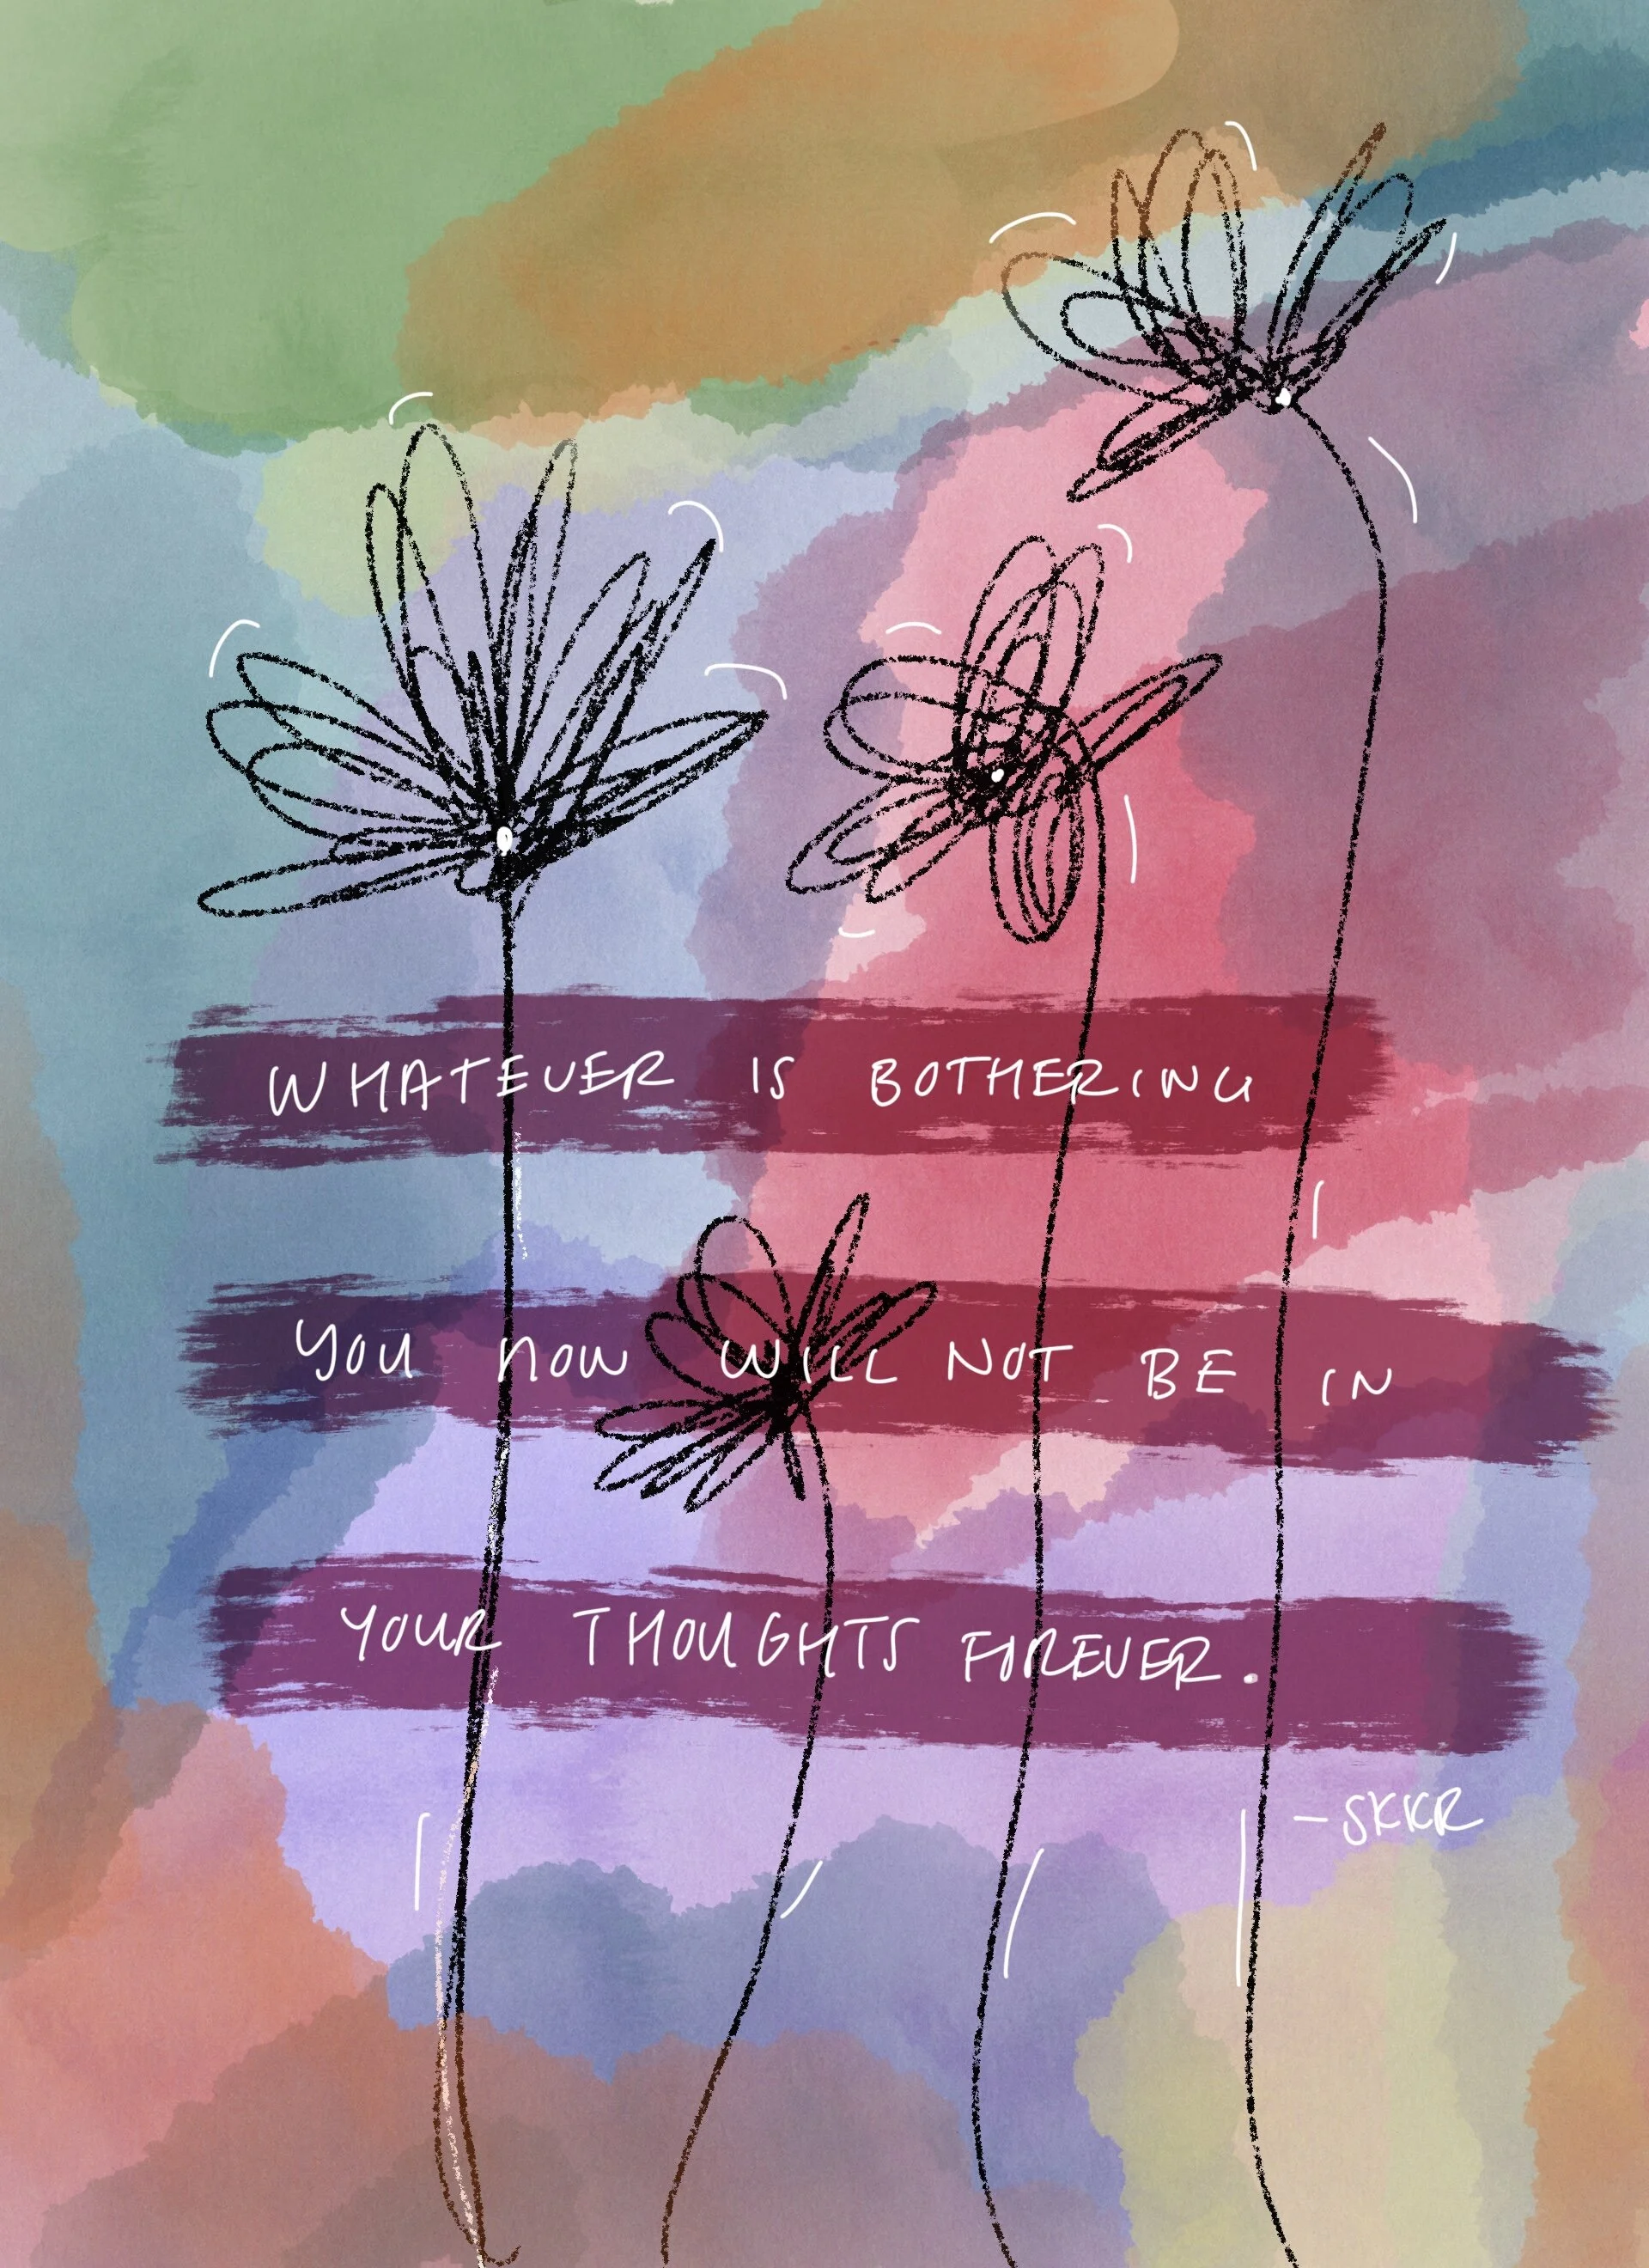 WHATEVER IS BOTHERING
YOU NOW WILL NOT BE IN
YOUR THOUGHTS FOREVER.
-SKKR